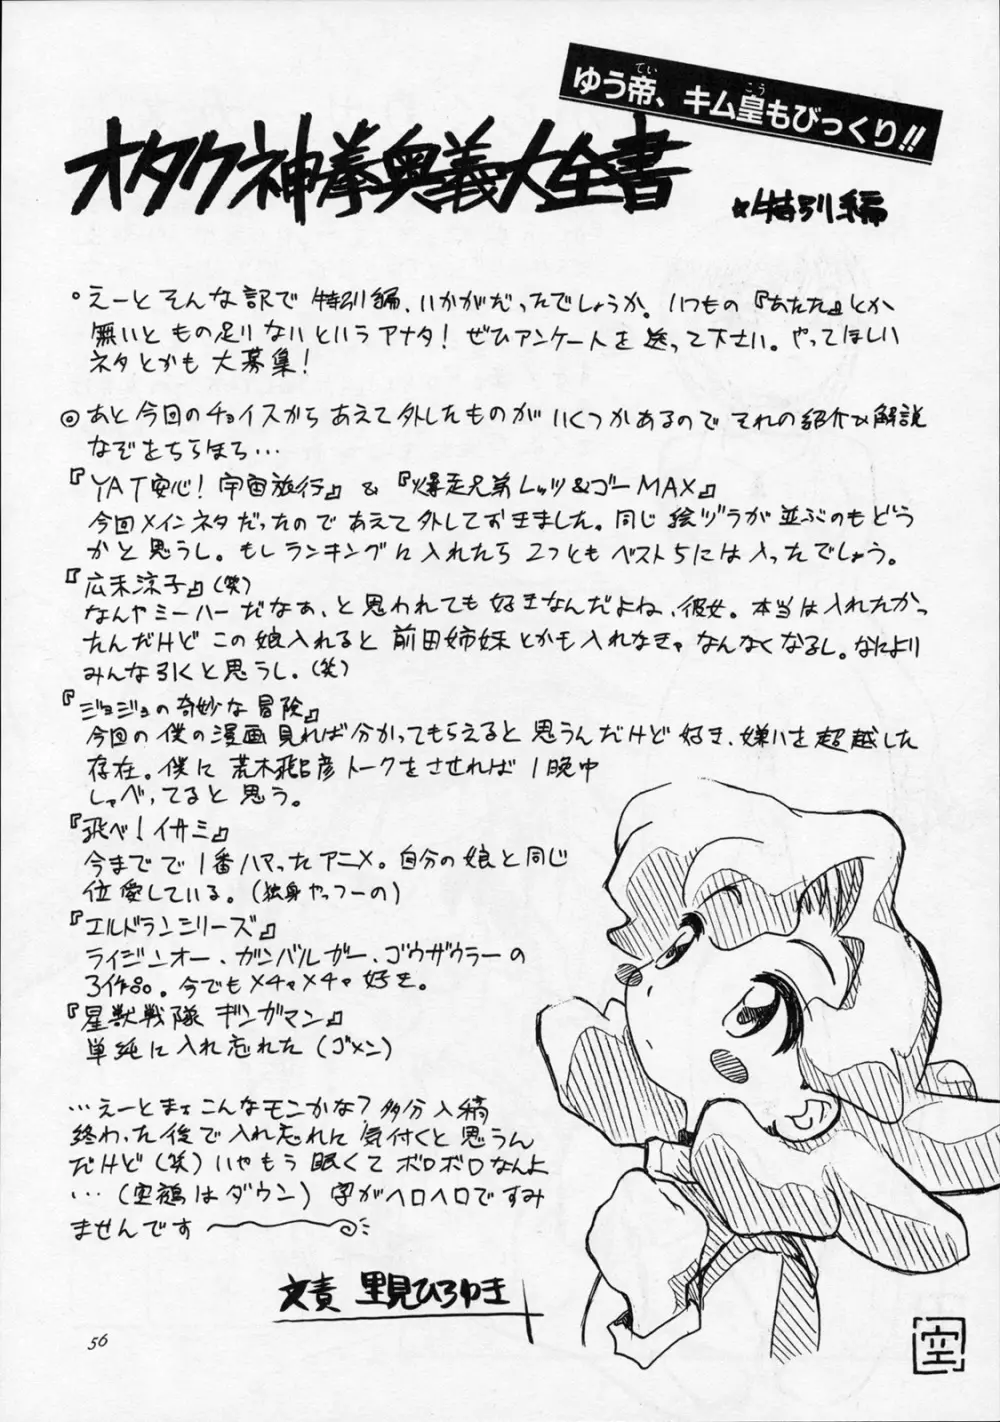 ゆう帝、キム皇もびっくり!!
てい
こう
オタク神拳奥義大全書
☆特別編
◦えーとそんな訳で特別編、いかがだったでしょうか。いつもの『あたた』とか
無いともの足りないというアナタ！ぜひアンケートを送って下さい。やってほしい
ネタとかも大募集！
◎あと今回のチョイスからあえて外したものがいくつかあるのでそれの紹介&解説
なぞをちらほら…
『YAT安心！宇宙旅行』&『爆走兄弟レッツ&ゴーMAX』
今回メインネタだったのであえて外しておきました。同じ絵ヅラが並ぶのもどう
かと思うし。もしランキングに入れたら2つともベスト5には入ったでしょう。
『広末涼子』(笑)
なんやミーハーだなぁ、と思われても好きなんだよね、彼女。本当は入れたかっ
たんだけどこの娘入れると前田姉妹とかも入れなきゃなんなくなるし。なにより
みんな引くと思うし。(笑)
『ジョジョの奇妙な冒険』
今回の僕の漫画見れば分かってもらえると思うんだけど好き、嫌いを超越した
存在。僕に荒木飛呂彦トークをさせれば1晩中
しゃべってると思う。
『飛べ！イサミ』
今までで1番ハマったアニメ。自分の娘と同じ
位愛している。(独身やっつーの)
『エルドランシリーズ』
ライジンオー、ガンバルガー、ゴウザウラーの
3作品。今でもメチャメチャ好き。
『星獣戦隊ギンガマン』
単純に入れ忘れた(ゴメン)
…えーとまぁこんなモンかな？多分入稿
終わった後で入れ忘れに気付くと思うん
だけど(笑)いやもう眠くてボロボロなんよ
…(空鶴はダウン)字がヘロヘロですみ
ませんです
文責 里見ひろゆき
56
空